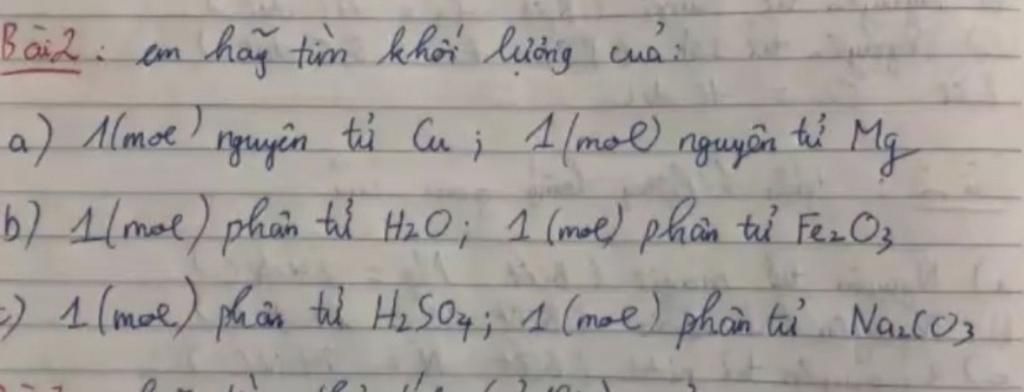 Bài 2: em hãy tìm khối lượng của:
a) 1(mol) nguyên tử Cu; 1(mol) nguyên tử Mg
b) 1(mol) phân tử H2O; 1(mol) phân tử Fe2O3
c) 1(mol) phân tử H2SO4; 1(mol) phân tử Na2CO3